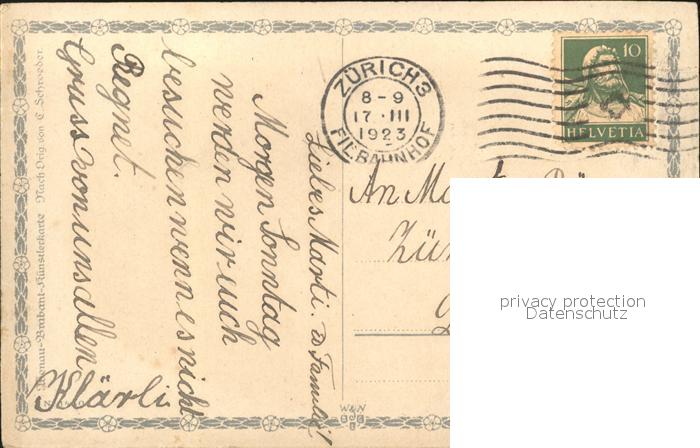 Liebes Marti. & Familie!
Morgen Sonntag
werden wir euch
besuchen wenn es nicht
Regnet.
Gruss von uns allen
Klärli
Nach Orig. von C. Schroeder.
Donau-Brabant-Künstlerkarte
ZÜRICH 3
8-9
17·III
1923
FIL. BAHNHOF
10
HELVETIA
An
Zü
privacy protection
Datenschutz
W&N